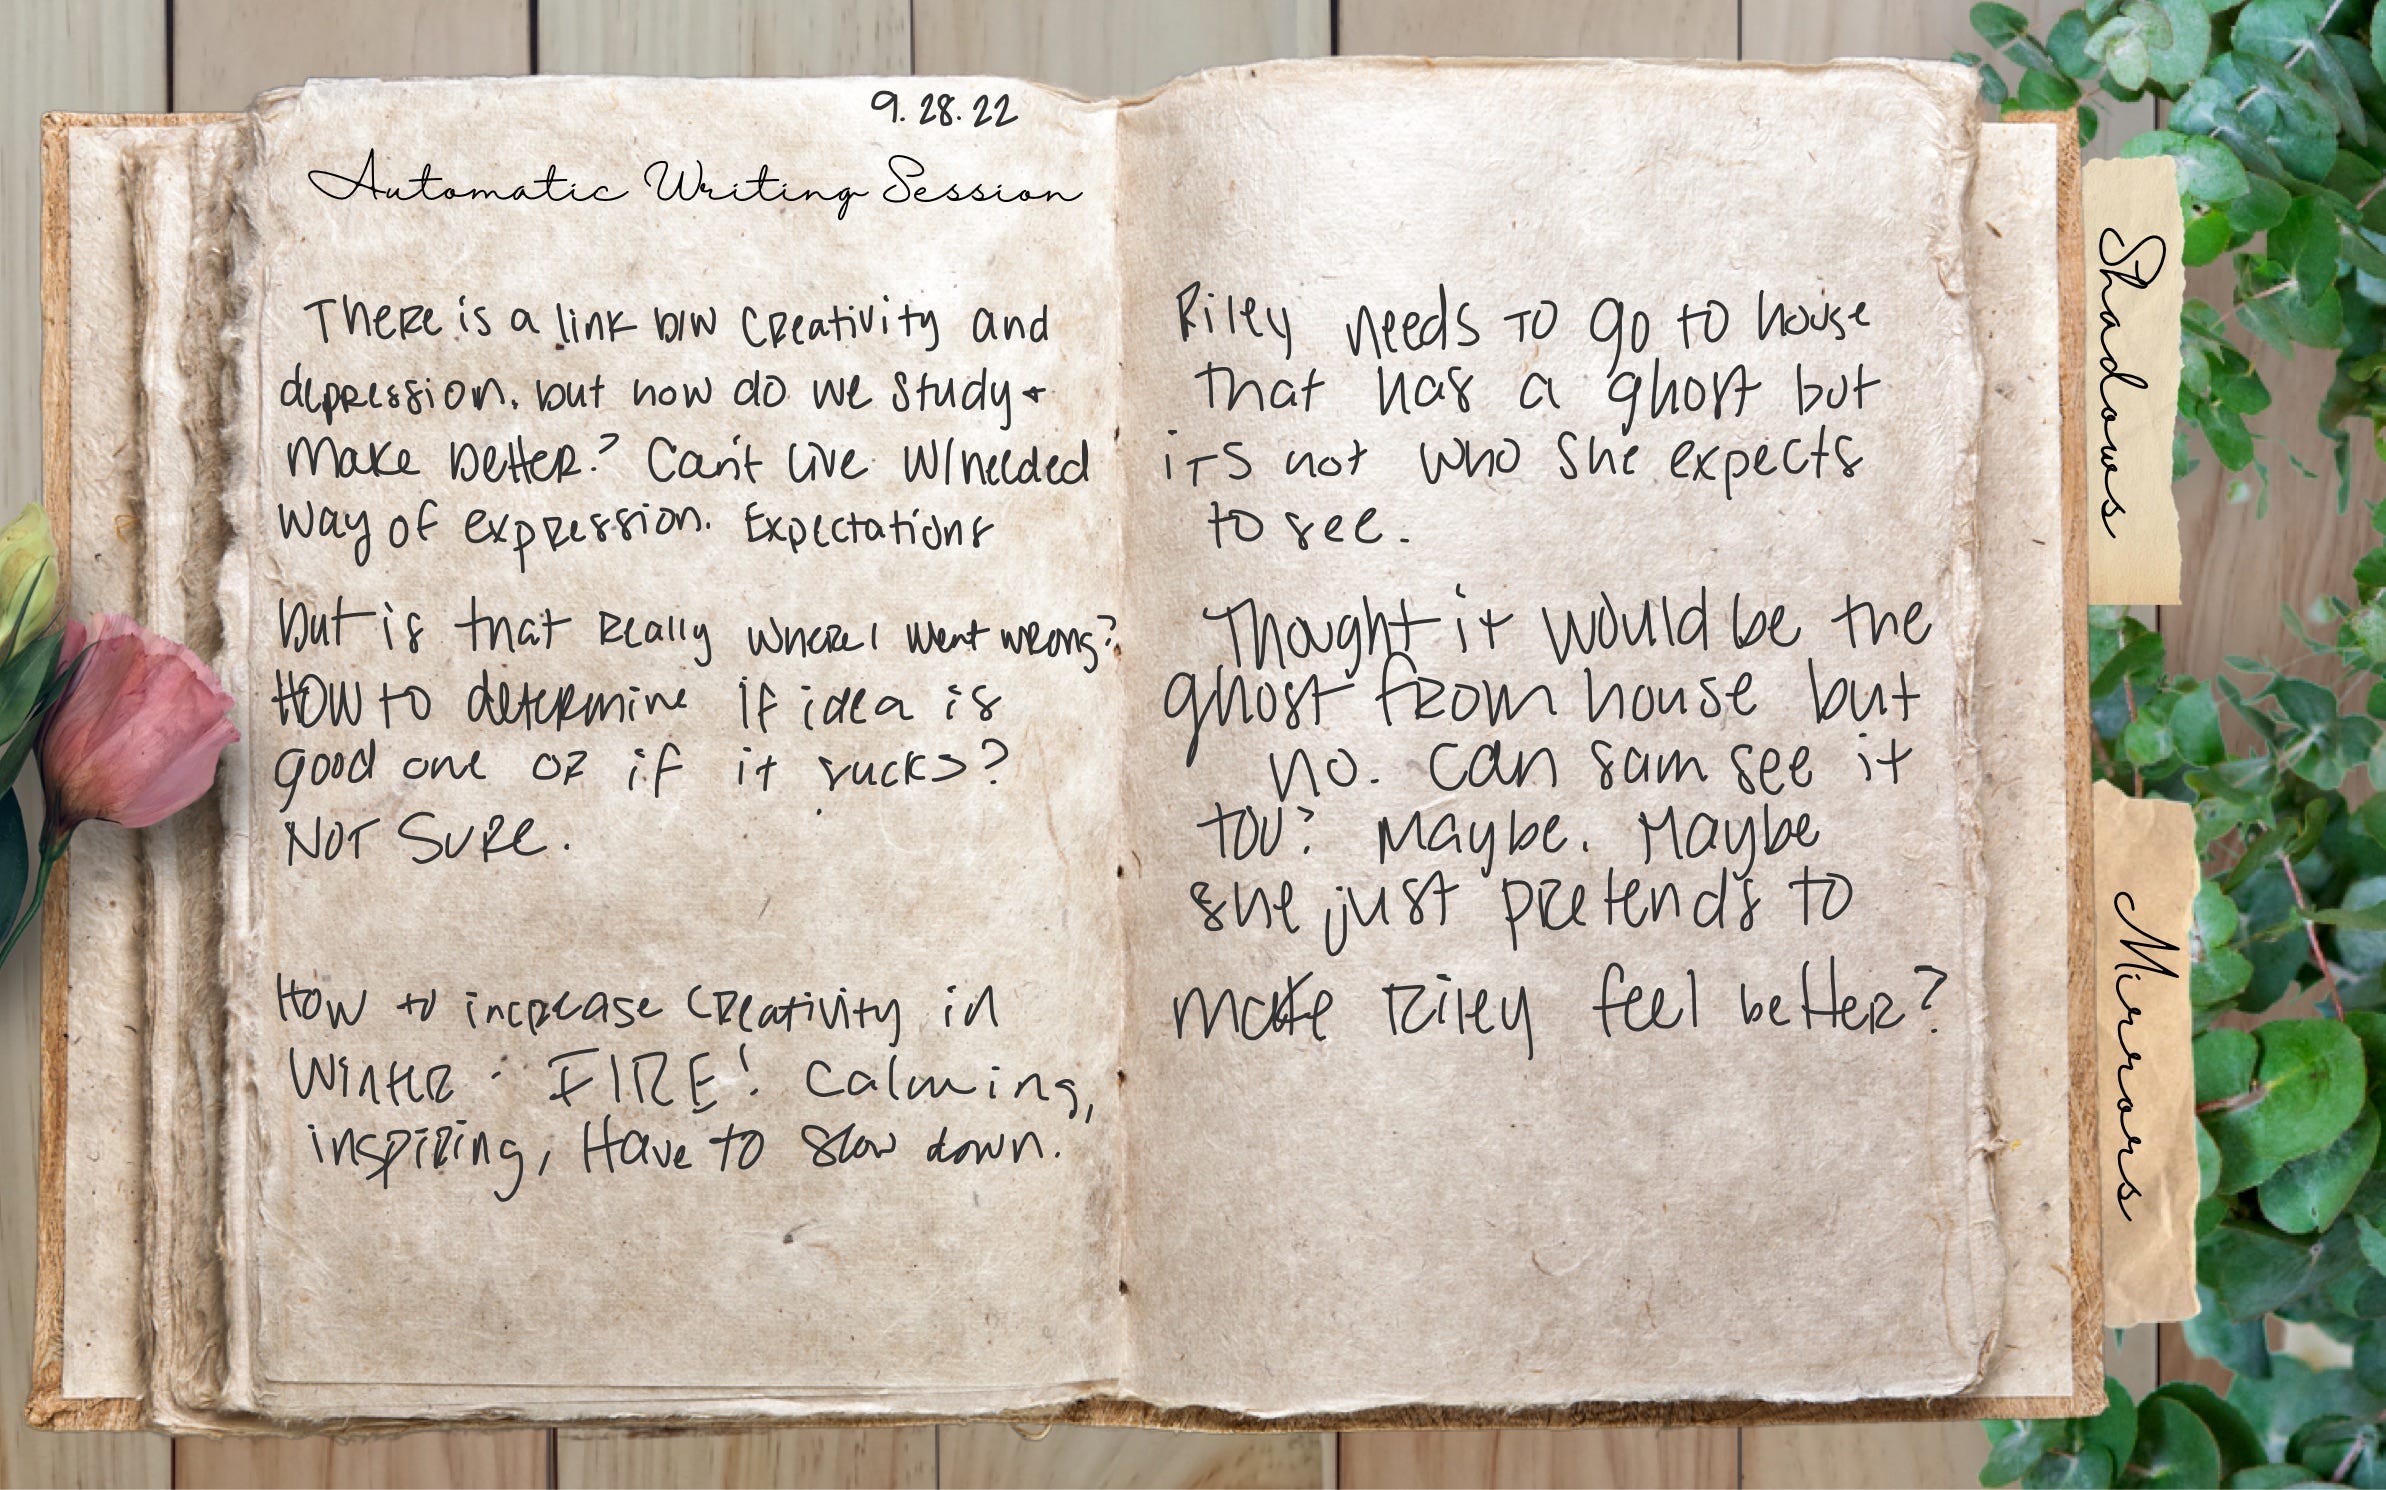 9.28.22
Automatic Writing Session
There is a link b/w creativity and
depression. but how do we study +
make better? Can't live w/needed
way of expression. Expectations
but is that really where I went wrong?
How to determine if idea is
good one or if it sucks?
Not sure.
How to increase creativity in
winter: FIRE! Calming,
inspiring, Have to slow down.
Riley needs to go to house
that has a ghost but
its not who she expects
to see.
Thought it would be the
ghost from house but
no. Can sam see it
too? Maybe. Maybe
she just pretends to
make Riley feel better?
Shadows
Mirrors